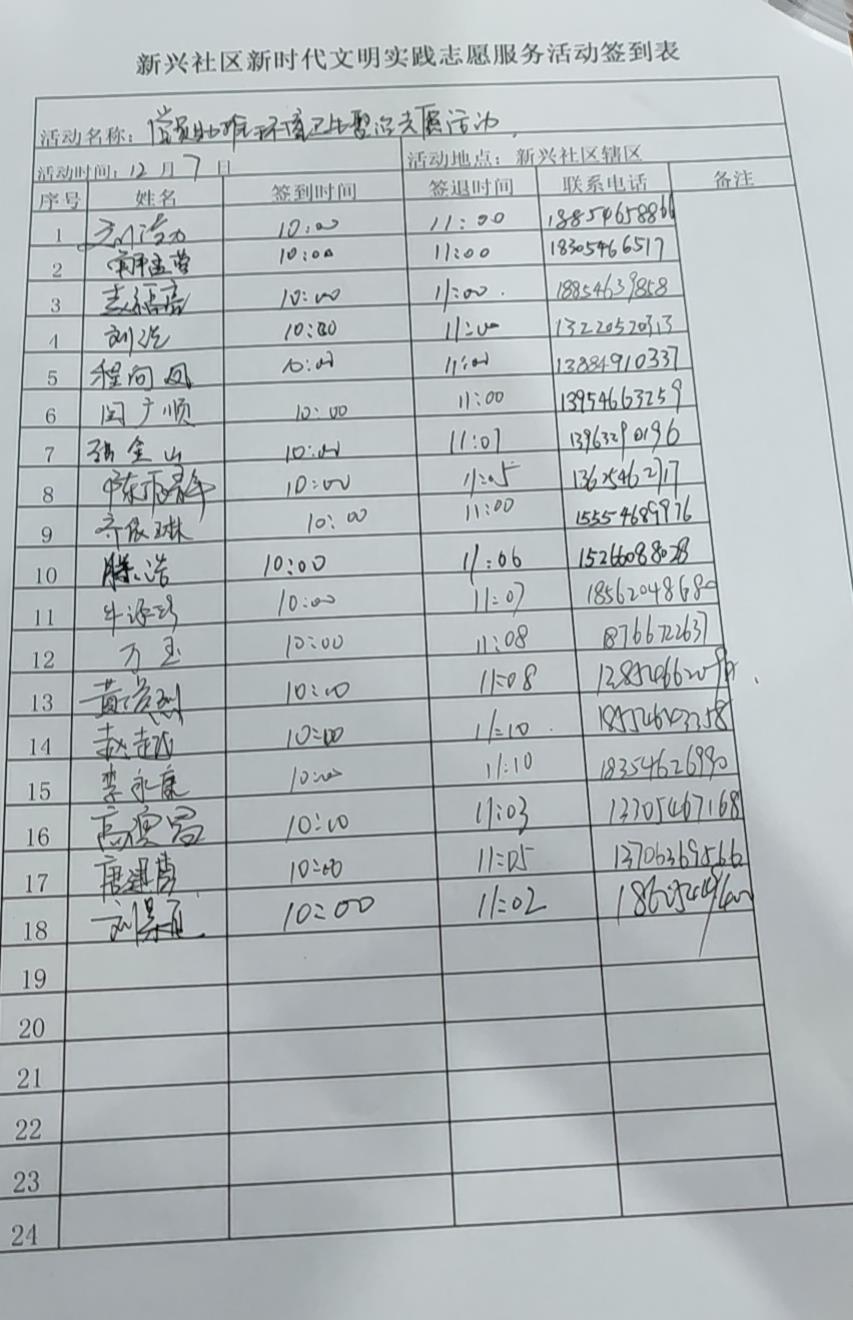 新兴社区新时代文明实践志愿服务活动签到表
活动名称：党员 环境卫生整治志愿活动
活动时间：12月7日 活动地点：新兴社区辖区
序号 姓名 签到时间 签退时间 联系电话 备注
1 10:00 11:00 18854658866
2 10:00 11:00 18305466517
3 10:00 11:00. 18854639858
4 刘 10:00 11:00 13220520313
5 程向凤 10:00 11:00 13884910337
6 闫广顺 10:00 11:00 13954663259
7 张金山 10:00 11:07 13963290196
8 陈雨静 10:00 11:05
9 齐俊琳 10:00 11:00 15554689976
10 滕浩 10:00 11:06 15266088028
11 牛 10:00 11:07 18562048680
12 万玉 10:00 11:08 18766722637
13 黄 10:00 11:08
14 赵 10:00 11:10
15 李永康 10:00 11:10 18354626990
16 高 10:00 11:03 13305467168
17 唐建 10:00 11:05 13706369566
18 刘 10:00 11:02
19
20
21
22
23
24